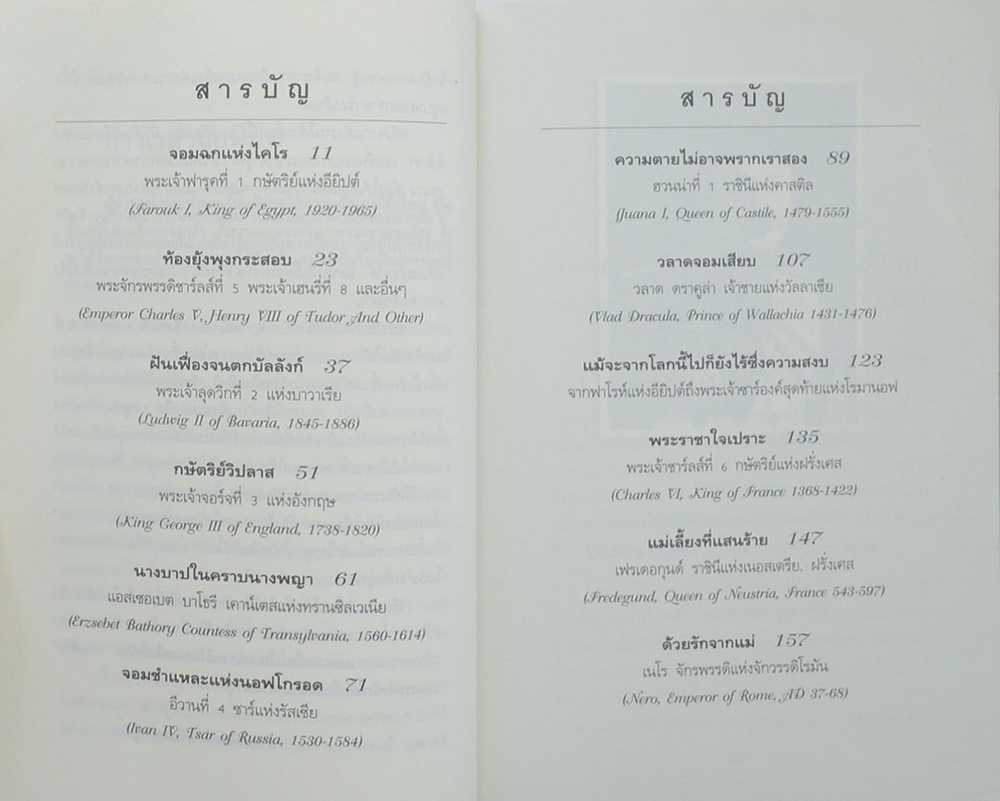 สารบัญ
จอมฉกแห่งไคโร 11
พระเจ้าฟารุคที่ 1 กษัตริย์แห่งอียิปต์
(Farouk I, King of Egypt, 1920-1965)
ท้องยุ้งพุงกระสอบ 23
พระจักรพรรดิชาร์ลส์ที่ 5 พระเจ้าเฮนรี่ที่ 8 และอื่นๆ
(Emperor Charles V, Henry VIII of Tudor And Other)
ฝันเฟื่องจนตกบัลลังก์ 37
พระเจ้าลุดวิกที่ 2 แห่งบาวาเรีย
(Ludwig II of Bavaria, 1845-1886)
กษัตริย์วิปลาส 51
พระเจ้าจอร์จที่ 3 แห่งอังกฤษ
(King George III of England, 1738-1820)
นางบาปในคราบนางพญา 61
แอสเซอเบต บาโธรี เคาน์เตสแห่งทรานซิลเวเนีย
(Erzsebet Bathory Countess of Transylvania, 1560-1614)
จอมชำแหละแห่งนอฟโกรอด 71
อีวานที่ 4 ซาร์แห่งรัสเซีย
(Ivan IV, Tsar of Russia, 1530-1584)
สารบัญ
ความตายไม่อาจพรากเราสอง 89
ฮวนน่าที่ 1 ราชินีแห่งคาสติล
(Juana I, Queen of Castile, 1479-1555)
วลาดจอมเสียบ 107
วลาด ดราคูล่า เจ้าชายแห่งวัลลาเชีย
(Vlad Dracula, Prince of Wallachia 1431-1476)
แม้จะจากโลกนี้ไปก็ยังไร้ซึ่งความสงบ 123
จากฟาโรห์แห่งอียิปต์ถึงพระเจ้าซาร์องค์สุดท้ายแห่งโรมานอฟ
พระราชาใจเปราะ 135
พระเจ้าชาร์ลส์ที่ 6 กษัตริย์แห่งฝรั่งเศส
(Charles VI, King of France 1368-1422)
แม่เลี้ยงที่แสนร้าย 147
เฟรเดอกุนด์ ราชินีแห่งเนอสเตรีย, ฝรั่งเศส
(Fredegund, Queen of Neustria, France 543-597)
ด้วยรักจากแม่ 157
เนโร จักรพรรดิแห่งจักวรรดิโรมัน
(Nero, Emperor of Rome, AD 37-68)